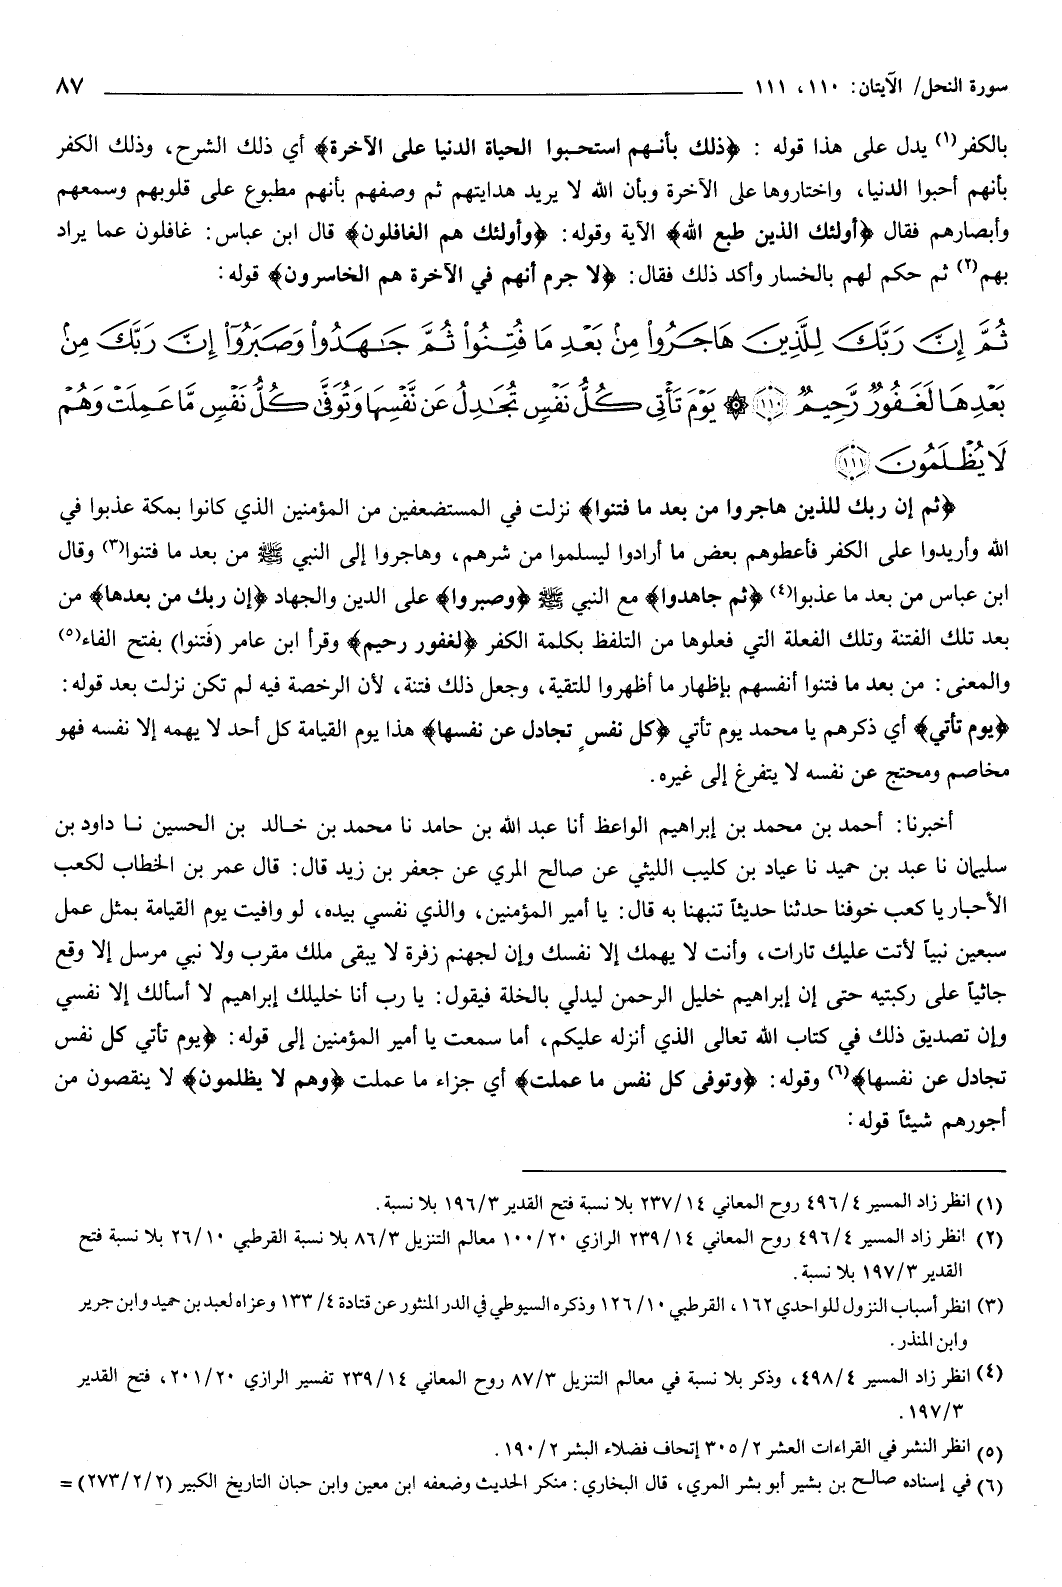 سورة النحل/ الآيتان: ١١٠، ١١١ ٨٧
بالكفر(١) يدل على هذا قوله : ﴿ذلك بأنهم استحبوا الحياة الدنيا على الآخرة﴾ أي ذلك الشرح، وذلك الكفر
بأنهم أحبوا الدنيا، واختاروها على الآخرة وبأن الله لا يريد هدايتهم ثم وصفهم بأنهم مطبوع على قلوبهم وسمعهم
وأبصارهم فقال ﴿أولئك الذين طبع الله﴾ الآية وقوله: ﴿وأولئك هم الغافلون﴾ قال ابن عباس: غافلون عما يراد
بهم(٢) ثم حكم لهم بالخسار وأكد ذلك فقال: ﴿لا جرم أنهم في الآخرة هم الخاسرون﴾ قوله:
ثُمَّ إِنَّ رَبَّكَ لِلَّذِينَ هَاجَرُواْ مِنۢ بَعْدِ مَا فُتِنُواْ ثُمَّ جَٰهَدُواْ وَصَبَرُوٓاْ إِنَّ رَبَّكَ مِنۢ
بَعْدِهَا لَغَفُورٌ رَّحِيمٌ ﴿١١٠﴾ ۞ يَوْمَ تَأْتِى كُلُّ نَفْسٍ تُجَٰدِلُ عَن نَّفْسِهَا وَتُوَفَّىٰ كُلُّ نَفْسٍ مَّا عَمِلَتْ وَهُمْ
لَا يُظْلَمُونَ ﴿١١١﴾
﴿ثم إن ربك للذين هاجروا من بعد ما فتنوا﴾ نزلت في المستضعفين من المؤمنين الذي كانوا بمكة عذبوا في
الله وأريدوا على الكفر فأعطوهم بعض ما أرادوا ليسلموا من شرهم، وهاجروا إلى النبي ﷺ من بعد ما فتنوا(٣) وقال
ابن عباس من بعد ما عذبوا(٤) ﴿ثم جاهدوا﴾ مع النبي ﷺ ﴿وصبروا﴾ على الدين والجهاد ﴿إن ربك من بعدها﴾ من
بعد تلك الفتنة وتلك الفعلة التي فعلوها من التلفظ بكلمة الكفر ﴿لغفور رحيم﴾ وقرأ ابن عامر (فَتنوا) بفتح الفاء(٥)
والمعنى: من بعد ما فتنوا أنفسهم بإظهار ما أظهروا للتقية، وجعل ذلك فتنة، لأن الرخصة فيه لم تكن نزلت بعد قوله:
﴿يوم تأتي﴾ أي ذكرهم يا محمد يوم تأتي ﴿كل نفسٍ تجادل عن نفسها﴾ هذا يوم القيامة كل أحد لا يهمه إلا نفسه فهو
مخاصم ومحتج عن نفسه لا يتفرغ إلى غيره.
أخبرنا: أحمد بن محمد بن إبراهيم الواعظ أنا عبد الله بن حامد نا محمد بن خالد بن الحسين نا داود بن
سليمان نا عبد بن حميد نا عياد بن كليب الليثي عن صالح المري عن جعفر بن زيد قال: قال عمر بن الخطاب لكعب
الأحبار يا كعب خوفنا حدثنا حديثاً تنبهنا به قال: يا أمير المؤمنين، والذي نفسي بيده، لو وافيت يوم القيامة بمثل عمل
سبعين نبياً لأتت عليك تارات، وأنت لا يهمك إلا نفسك وإن لجهنم زفرة لا يبقى ملك مقرب ولا نبي مرسل إلا وقع
جاثياً على ركبتيه حتى إن إبراهيم خليل الرحمن ليدلي بالخلة فيقول: يا رب أنا خليلك إبراهيم لا أسألك إلا نفسي
وإن تصديق ذلك في كتاب الله تعالى الذي أنزله عليكم، أما سمعت يا أمير المؤمنين إلى قوله: ﴿يوم تأتي كل نفس
تجادل عن نفسها﴾(٦) وقوله: ﴿وتوفى كل نفس ما عملت﴾ أي جزاء ما عملت ﴿وهم لا يظلمون﴾ لا ينقصون من
أجورهم شيئاً قوله:
(١) انظر زاد المسير ٤٩٦/٤ روح المعاني ٢٣٧/١٤ بلا نسبة فتح القدير ١٩٦/٣ بلا نسبة.
(٢) انظر زاد المسير ٤٩٦/٤ روح المعاني ٢٣٩/١٤ الرازي ١٠٠/٢٠ معالم التنزيل ٨٦/٣ بلا نسبة القرطبي ٢٦/١٠ بلا نسبة فتح
القدير ١٩٧/٣ بلا نسبة.
(٣) انظر أسباب النزول للواحدي ١٦٢، القرطبي ١٢٦/١٠ وذكره السيوطي في الدر المنثور عن قتادة ١٣٣/٤ وعزاه لعبد بن حميد وابن جرير
وابن المنذر.
(٤) انظر زاد المسير ٤٩٨/٤، وذكر بلا نسبة في معالم التنزيل ٨٧/٣ روح المعاني ٢٣٩/١٤ تفسير الرازي ٢٠١/٢٠، فتح القدير
١٩٧/٣.
(٥) انظر النشر في القراءات العشر ٣٠٥/٢ إتحاف فضلاء البشر ١٩٠/٢.
(٦) في إسناده صالح بن بشير أبو بشر المري، قال البخاري: منكر الحديث وضعفه ابن معين وابن حبان التاريخ الكبير (٢٧٣/٢/٢) =